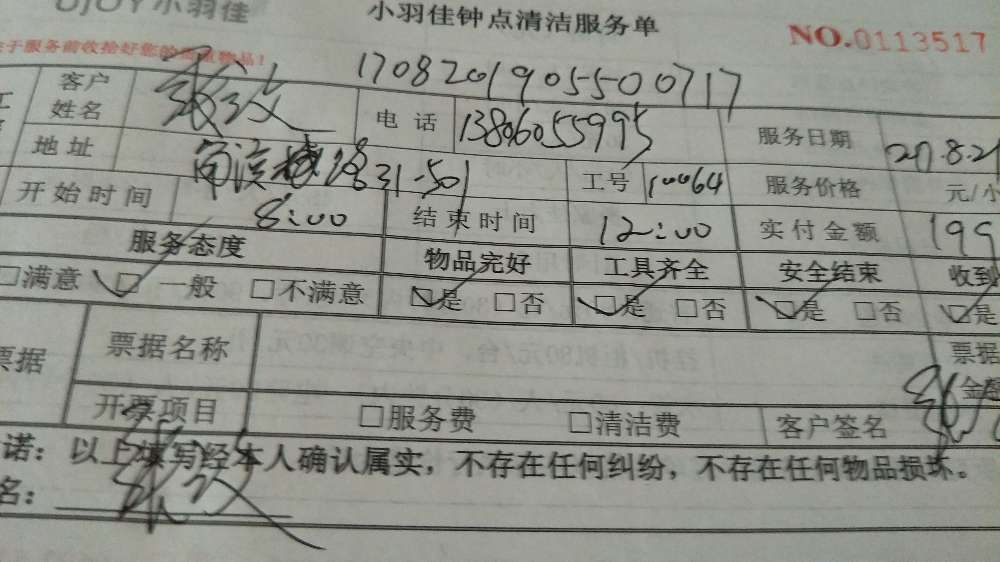 DJOY小羽佳 小羽佳钟点清洁服务单 NO.0113517
于服务前收拾好您的贵重物品!
1708201905500717
客户姓名 电话 13806055995 服务日期 20.8.21
地址 31-501 工号 10064 服务价格 元/小
开始时间 8:00 结束时间 12:00 实付金额 199
服务态度 物品完好 工具齐全 安全结束 收到
□满意 □一般 □不满意 □是 □否 □是 □否 □是 □否 □是
票据 票据名称 票据金额
开票项目 □服务费 □清洁费 客户签名
诺:以上填写经本人确认属实,不存在任何纠纷,不存在任何物品损坏。
名: